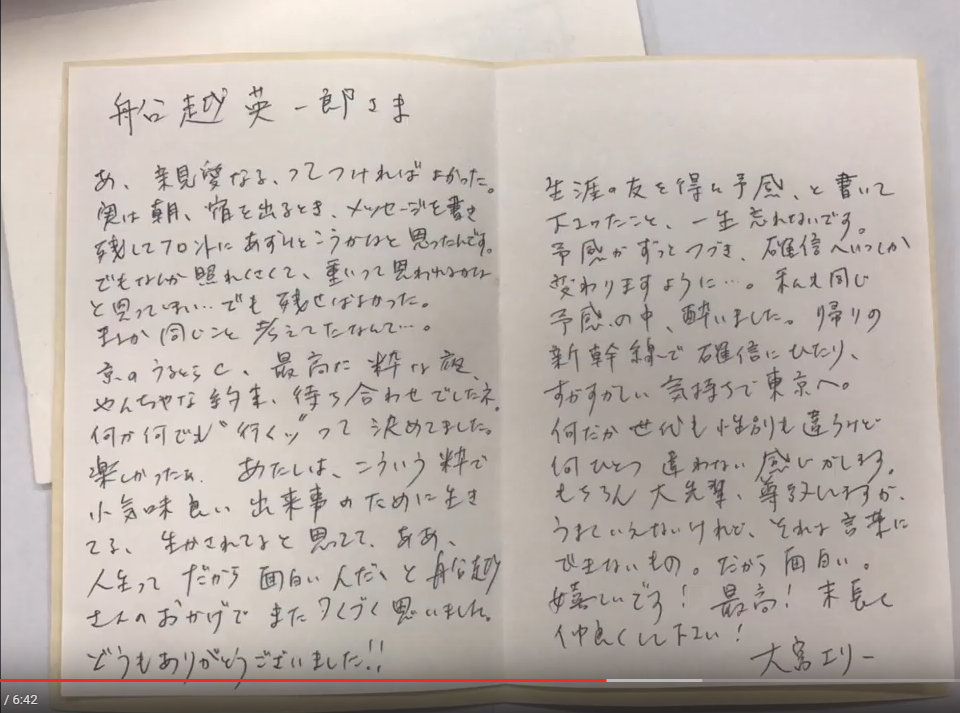 船越英一郎さま
あ、親愛なる、ってつければよかった。
実は朝、宿を出るとき、メッセージを書き
残してフロントにあずけとこうかなと思ったんです。
でもなんか照れくさくて、重いって思われるかな
と思ってしまい…でも残せばよかった。
まさか同じこと考えてたなんて…。
京のうるとらC、最高な粋な夜、
やんちゃな約束、待ち合わせでしたネ。
何が何でも“行くッ”って決めてました。
楽しかったぁ。あたしは、こういう粋で
小気味良い出来事のために生き
てる、生かされてると思ってて、ああ、
人生ってだから面白いんだ、と船越
さんのおかげでまたつくづく思いました。
どうもありがとうございました!!
生涯の友を得た予感、と書いて
下さったこと、一生忘れないです。
予感がずっとつづき、確信へいつしか
変わりますように…。私も同じ
予感の中、酔いました。帰りの
新幹線で確信にひたり、
すがすがしい気持ちで東京へ。
何だか世代も性別も違うけど
何ひとつ違わない感じがします。
もちろん大先輩、尊敬しますが、
うまくいえないけれど、それは言葉に
できないもの。だから面白い。
嬉しいです!最高!末長く
仲良くして下さい!
大宮エリー
/ 6:42